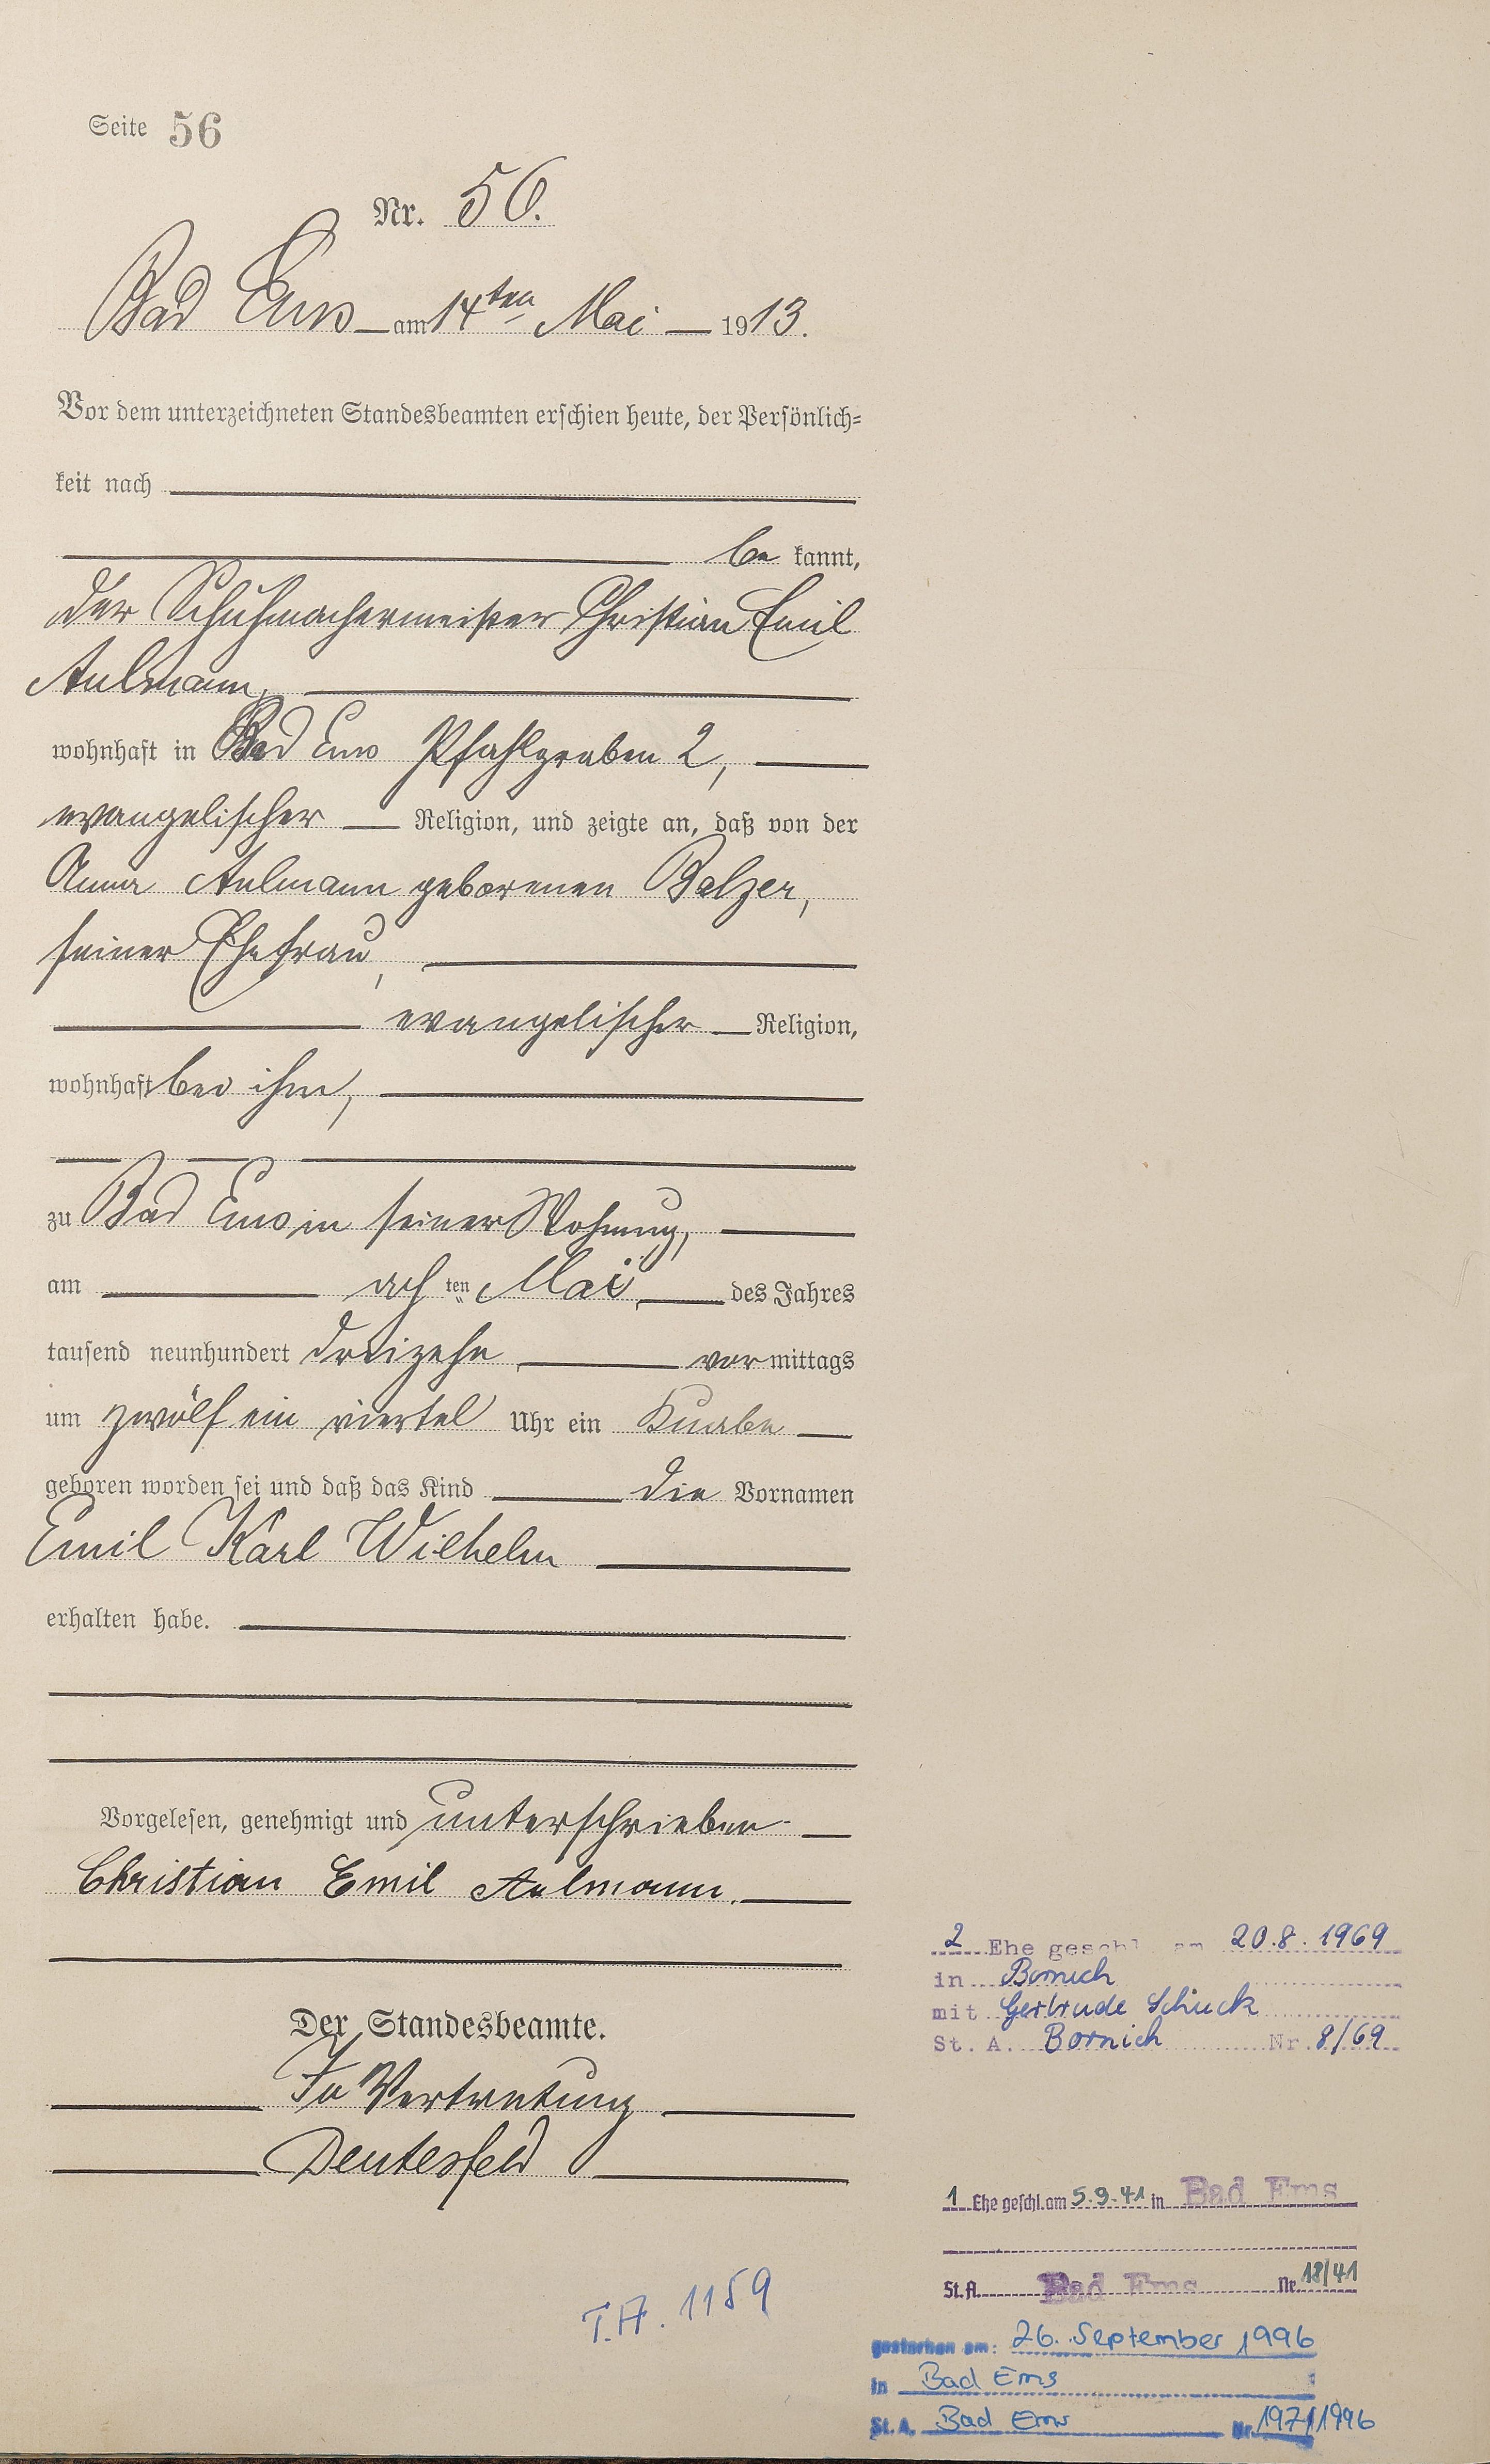 Seite 56
Nr. 56.
Bad Ems am 14ten Mai 1913.
Vor dem unterzeichneten Standesbeamten erschien heute, der Persönlich-
keit nach
be kannt,
der Schuhmachermeister Christian Emil
Aulmann,
wohnhaft in Bad Ems Pfahlgraben 2,
evangelischer Religion, und zeigte an, daß von der
Anna Aulmann geborenen Balzer,
seiner Ehefrau,
evangelischer Religion,
wohnhaft bei ihm,
zu Bad Ems in seiner Wohnung,
am ach ten Mai des Jahres
tausend neunhundert dreizehn vor mittags
um zwölf ein viertel Uhr ein Knabe
geboren worden sei und daß das Kind die Vornamen
Emil Karl Wilhelm
erhalten habe.
Vorgelesen, genehmigt und unterschrieben
Christian Emil Aulmann.
Der Standesbeamte.
In Vertretung
Deutesfeld
T.A. 1159
2 Ehe geschl. am 20.8.1969
in Bornich
mit Gertrude Schuck
St. A. Bornich Nr. 8/69
1 Ehe geschl. am 5.9.41 in Bad Ems
St.A. Bad Ems Nr. 18/41
gestorben am: 26. September 1996
in Bad Ems
St. A. Bad Ems Nr. 197/1996